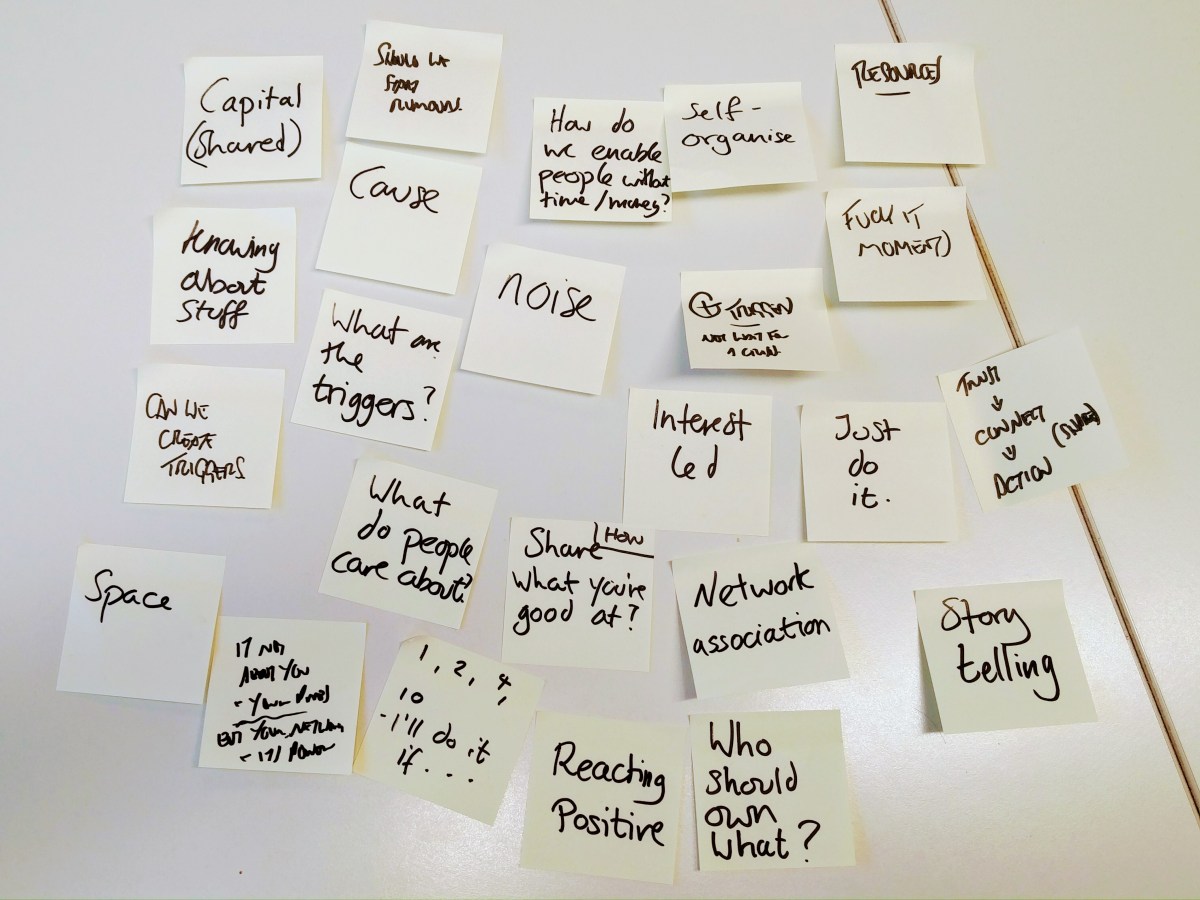 Capital
(Shared)
SHOULD WE
START
RUMOURS.
How do
we enable
people without
time/money?
Self-
organise
RESOURCES
Cause
Knowing
about
Stuff
FUCK IT
MOMENTS
noise
+ TRIGGER
NOT WAIT FOR
A
What are
the
triggers?
CAN WE
CREATE
TRIGGERS
Interest
led
Just
do
it.
TRUST
↓
CONNECT (SHARE)
↓
ACTION
What
do people
care about?
Share How
what you're
good at?
Space
Network
association
Story
telling
IT NOT
ABOUT YOU
- YOUR
BUT YOUR NETWORK
- ITS POWER
1, 2, 4,
10
- I'll do it
if ....
Reacting
Positive
Who
should
own
what?